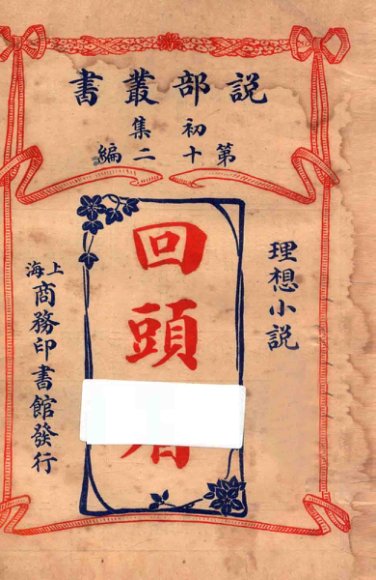 說部叢書
初集
第十二編
理想小說
回頭
上海商務印書館發行